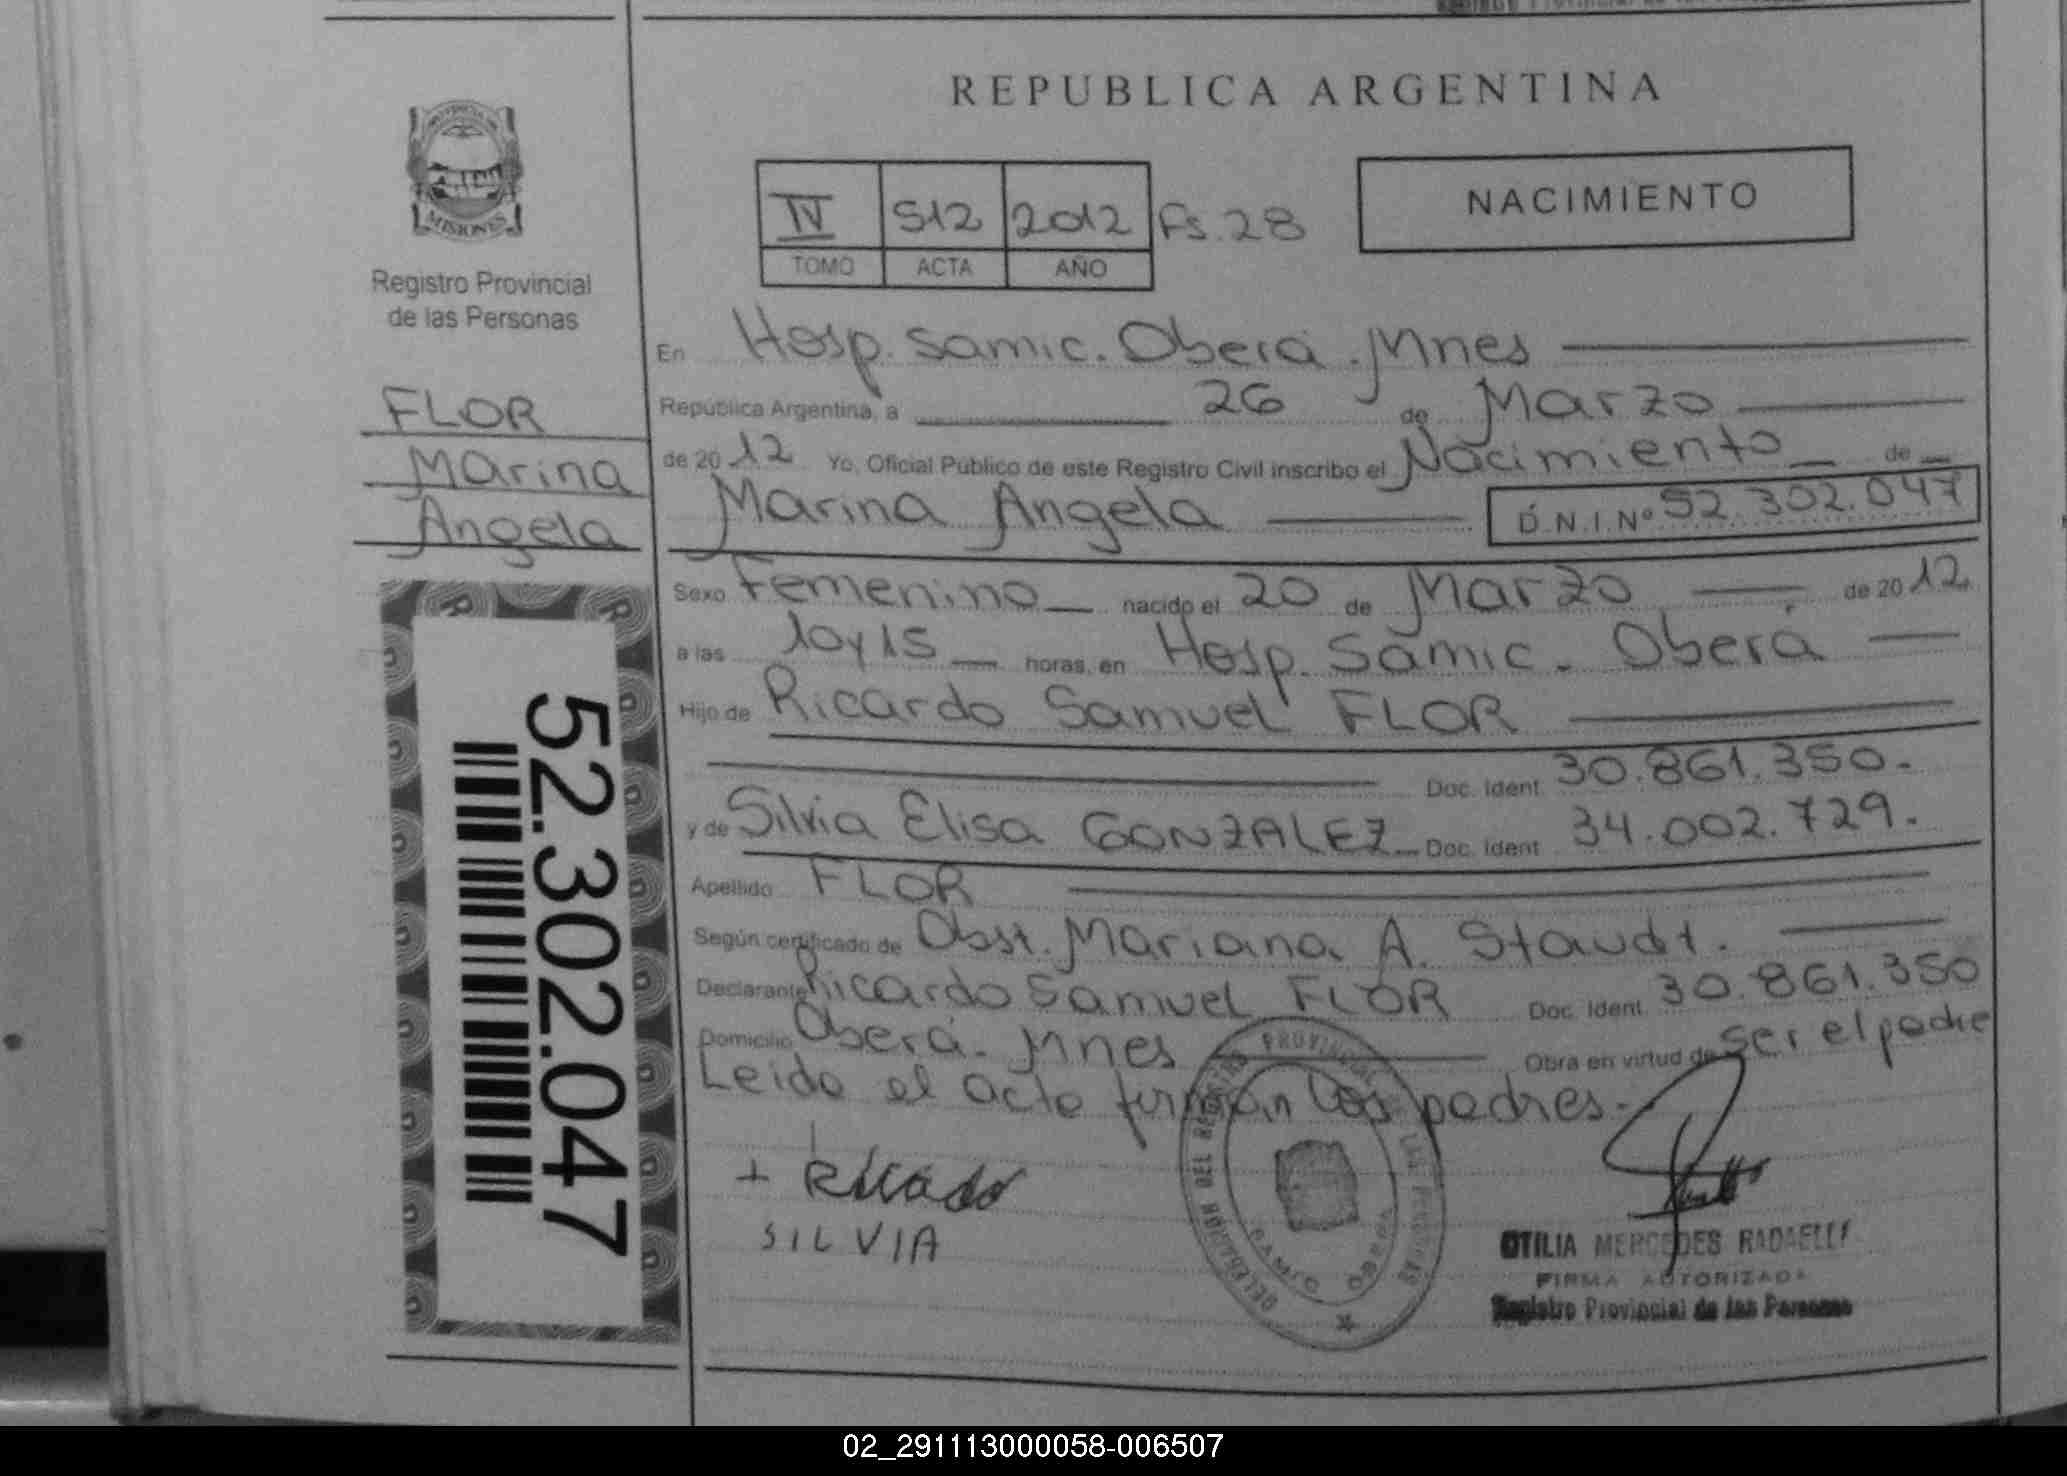 REPUBLICA ARGENTINA
PROVINCIA DE
MISIONES
Registro Provincial
de las Personas
IV 512 2012 Fs. 28
TOMO ACTA AÑO
NACIMIENTO
FLOR
Marina
Angela
52.302.047
En Hosp. Samic. Oberá. Mnes
República Argentina, a 26 de Marzo
de 2012 Yo, Oficial Público de este Registro Civil inscribo el Nacimiento de
Marina Angela D.N.I.Nº 52.302.047
Sexo Femenino nacido el 20 de Marzo de 2012
a las 10 y 15 horas, en Hosp. Samic. Oberá
Hijo de Ricardo Samuel FLOR
Doc. Ident. 30.861.350.
y de Silvia Elisa GONZALEZ Doc. Ident. 34.002.729.
Apellido FLOR
Según certificado de Obst. Mariana A. Staudt.
Declarante Ricardo Samuel FLOR Doc. Ident. 30.861.350
Domicilio Oberá. Mnes Obra en virtud de ser el padre
Leido el acta firman los padres.
+ Ricardo
SILVIA
OTILIA MERCEDES RADAELLI
FIRMA AUTORIZADA
Registro Provincial de las Personas
02_291113000058-006507